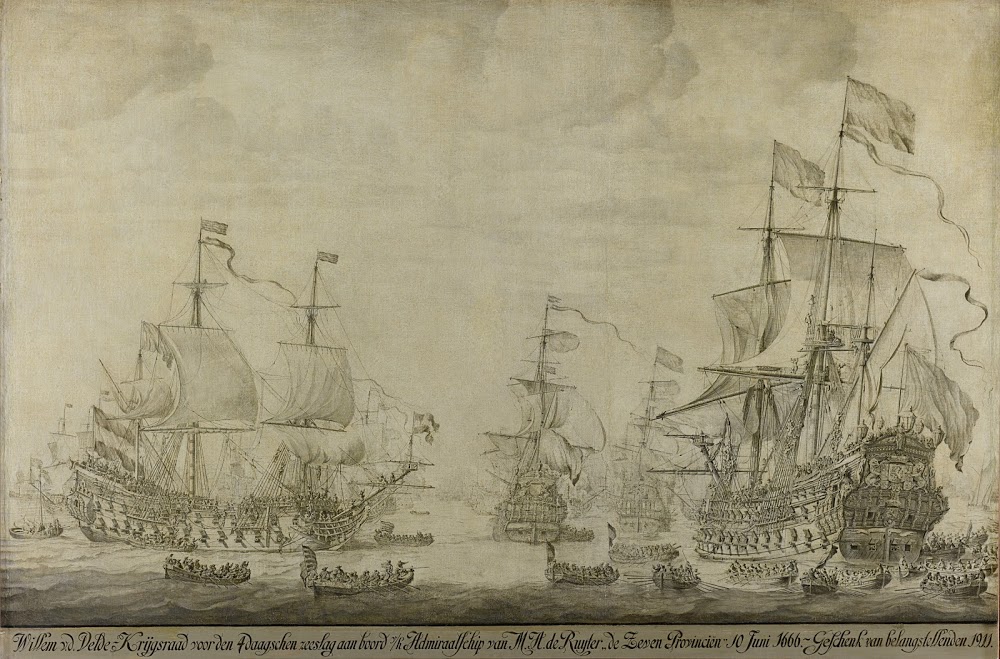 Willem v.d. Velde - Krijgsraad voor den 4daagschen zeeslag aan boord v/h Admiraalschip van M.A. de Ruyter „de Zeven Provinciën" 10 Juni 1666 - Geschenk van belangstellenden 1911.